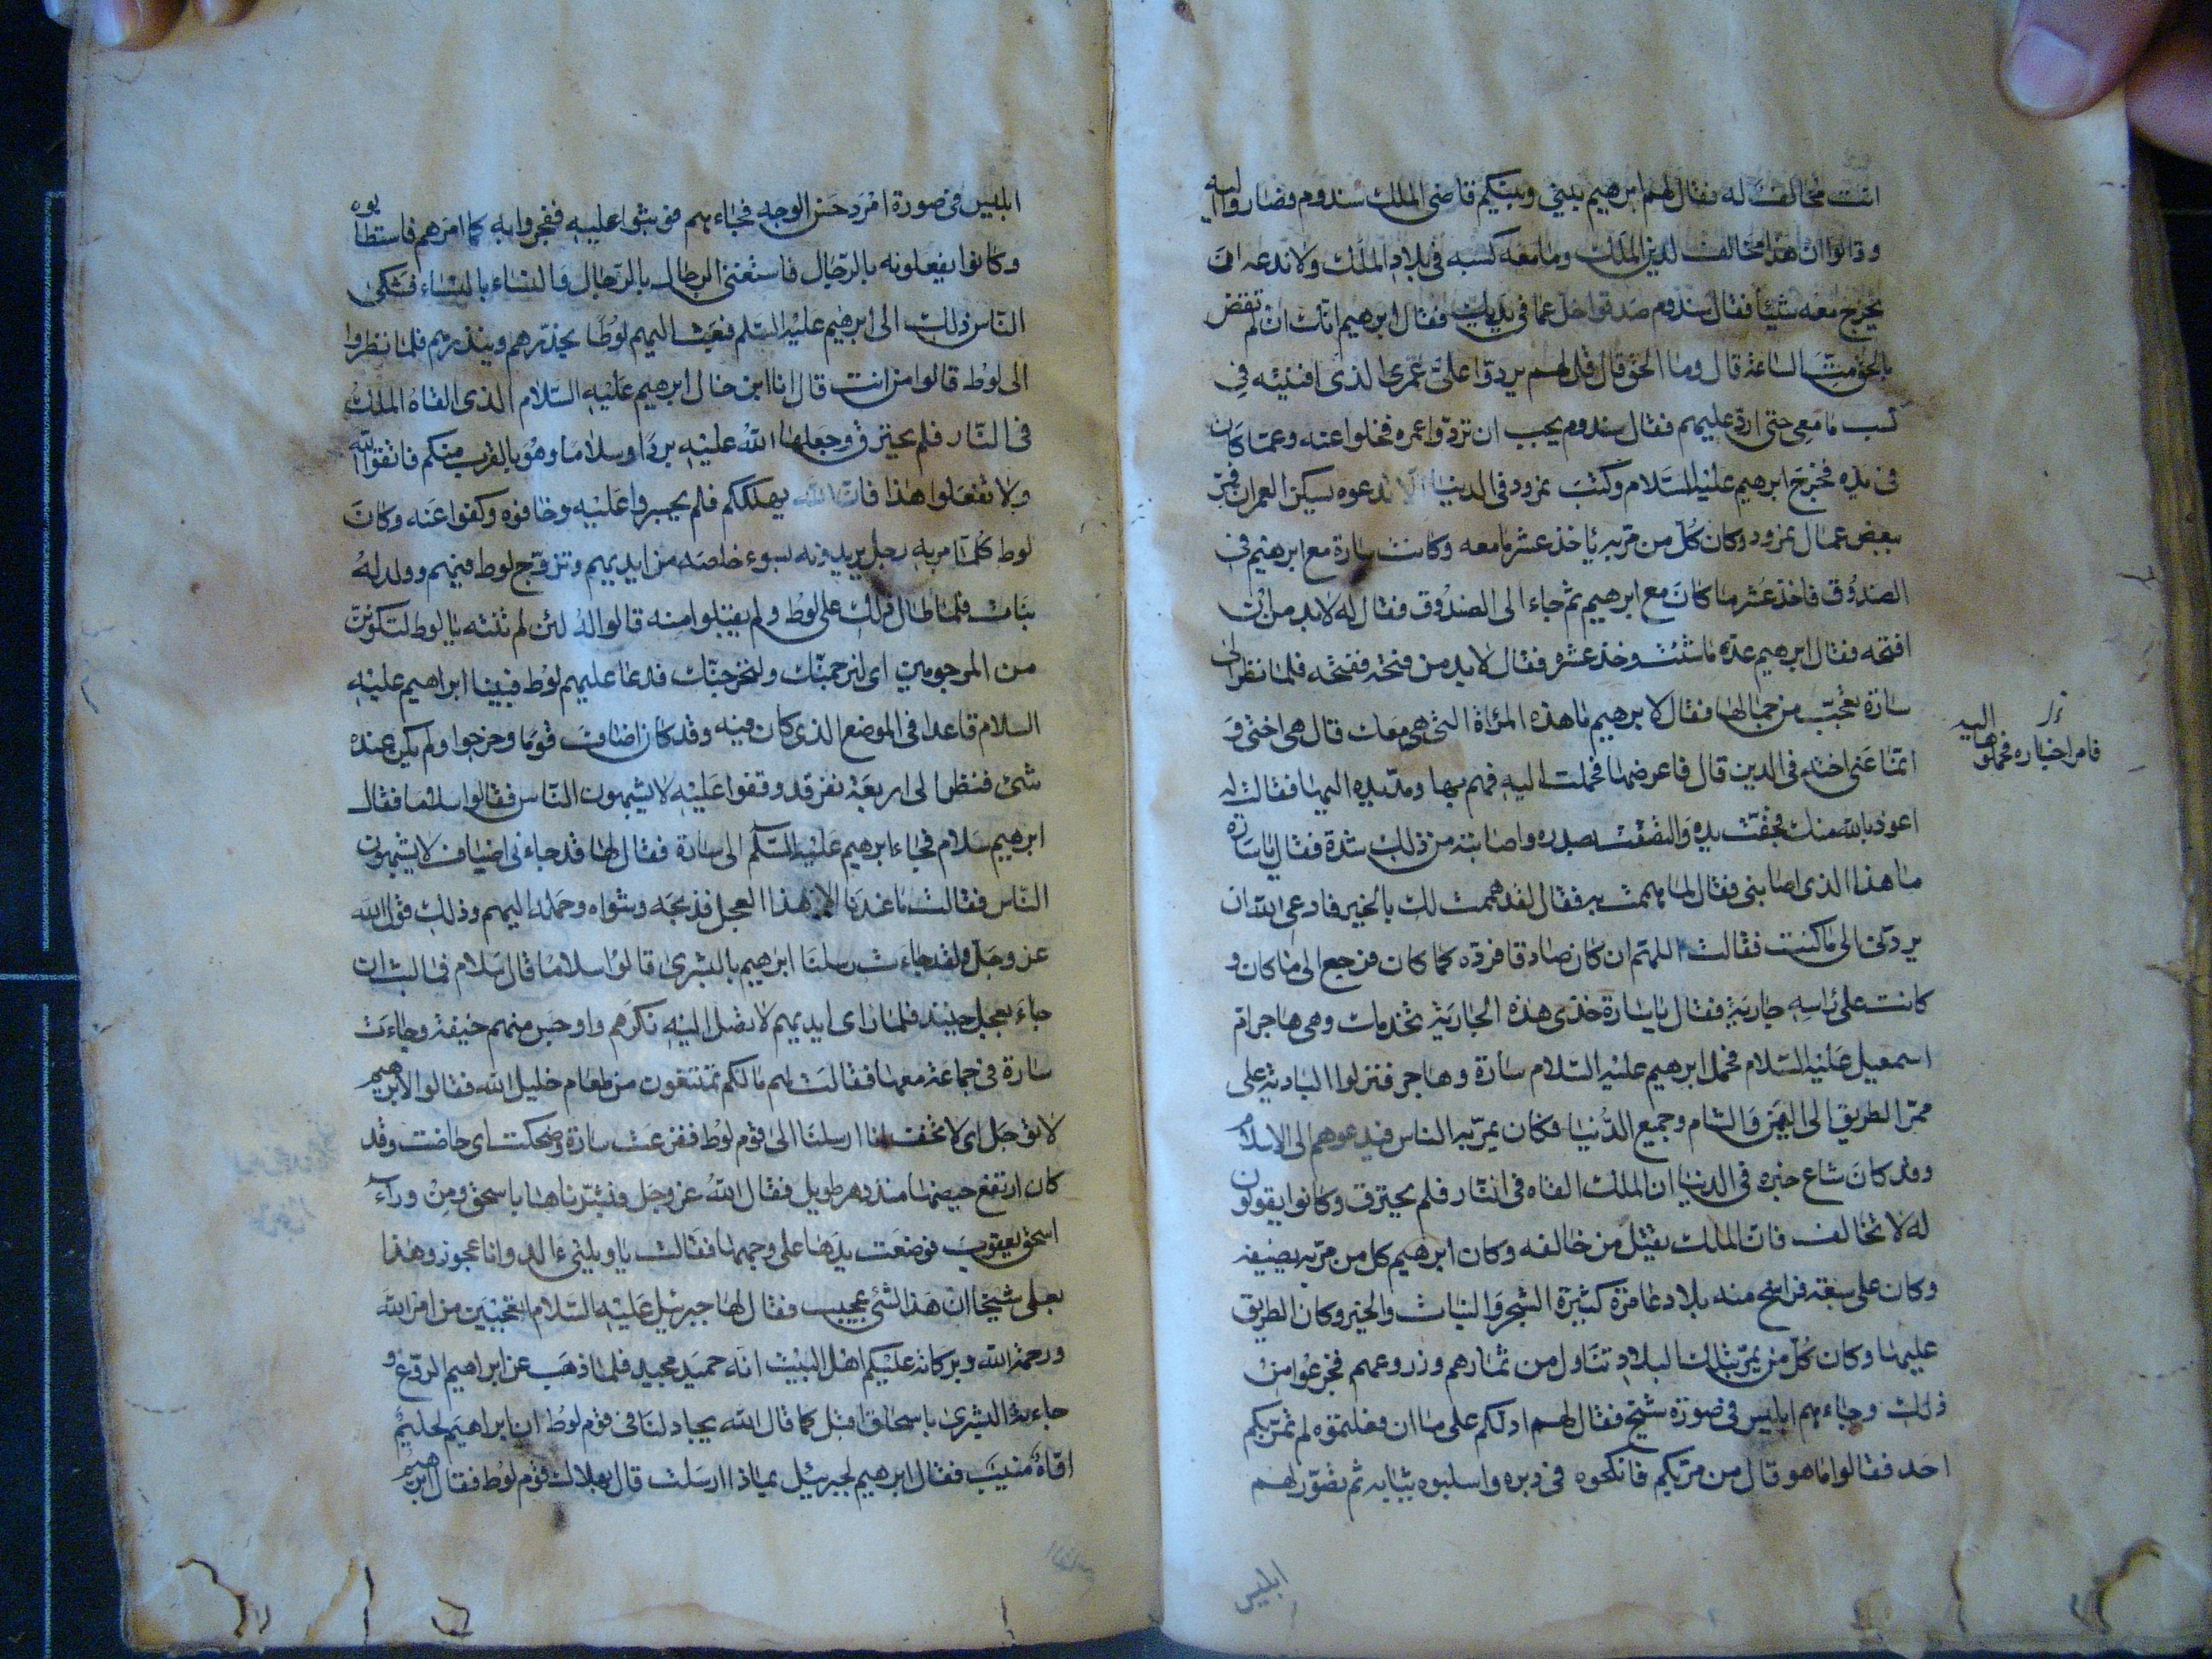 انت مخالف له فقال لهم ابرهيم بيني وبينكم قاضى الملك سندوم فصاروا اليه
وقالوا ان هذا مخالف لدين الملك وما معه كسبه فى بلاد الملك ولا ندعه ان
يخرج معه شيئا فقال سندوم صدقوا خل عما فى يديك فقال ابرهيم انك ان لم تقض
بالحق مت الساعة قال وما الحق قال قل لهم يردوا على عمرى الذى افنيته فى
كسب ما معى حتى ارد عليهم فقال سندوم يجب ان تردوا عمره فخلوا عنه وعما كان
فى يده فخرج ابرهيم عليه السلام وكتب نمرود فى الدنيا الا تدعوه يسكن العمران فمر
ببعض عمال نمرود وكان كل من مر به ياخذ عشر ما معه وكانت سارة مع ابرهيم فى
الصندوق فاخذ عشر ما كان مع ابرهيم ثم جاء الى الصندوق فقال له لابد من ان
افتحه فقال ابرهيم عده ما شئت وخذ عشره فقال لابد من فتحه ففتحه فلما نظر الى
سارة تعجب من جمالها فقال لابرهيم ما هذه المراة التى هى معك قال هى اختى و
انما عنى اخته فى الدين قال فاعرضها فحملت اليه فهم بها ومد يده اليها فقالت له
اعوذ بالله منك فجفت يده والتصقت بصدره واصابته من ذلك شدة فقال يا سارة
ما هذا الذى اصابنى فقال لما هممت به فقال لقد هممت لك بالخير فادعى الله ان
يردنى الى ما كنت فقالت اللهم ان كان صادقا فرده كما كان فرجع الى ما كان و
كانت على راسه جارية فقال يا سارة خذى هذه الجارية تخدمك وهى هاجر ام
اسمعيل عليه السلام فحمل ابرهيم عليه السلام سارة وهاجر فنزلوا البادية على
ممر الطريق الى اليمن والشام وجميع الدنيا فكان يمر به الناس فيدعوهم الى الاسلام
وقد كان شاع خبره فى الدنيا ان الملك القاه فى النار فلم يحترق وكانوا يقولون
له لا تخالف فان الملك يقتل من خالفه وكان ابرهيم كل من مر به يضيفه
وكان على سبعة فراسخ منه بلاد عامرة كثيرة الشجر والنبات والخير وكان الطريق
عليها وكان كل من يمر بتلك البلاد تناول من ثمارهم وزروعهم فجزعوا من
ذلك وجاءهم ابليس فى صورة شيخ فقال لهم ادلكم على ما ان فعلتموه لم يمر بكم
احد فقالوا ما هو قال من مر بكم فانكحوه فى دبره واسلبوه ثيابه ثم تصور لهم
فامر اخباره فحملوها اليه
ابليس
ابليس فى صورة امرد حسن الوجه فجاءهم فوثبوا عليه ففجروا به كما امرهم فاستطابوه
وكانوا يفعلونه بالرجال فاستغنى الرجال بالرجال والنساء بالنساء فشكى
الناس ذلك الى ابرهيم عليه السلم فبعث اليهم لوطا يحذرهم وينذرهم فلما نظروا
الى لوط قالوا من انت قال انا ابن خال ابرهيم عليه السلام الذى القاه الملك
فى النار فلم يحترق وجعلها الله عليه بردا وسلاما وهو بالقرب منكم فاتقوا الله
ولا تفعلوا هذا فان الله يهلككم فلم يجسروا عليه وخافوه وكفوا عنه وكان
لوط كلما مر به رجل يريدونه بسوء خلصه من ايديهم وتزوج لوط فيهم وولد له
بنات فلما طال ذلك على لوط ولم يقبلوا منه قالوا له لئن لم تنته يا لوط لتكونن
من المرجومين اى لنرجمنك ولنخرجنك فدعا عليهم لوط فبينا ابراهيم عليه
السلام قاعدا فى الموضع الذى كان فيه وقد كان اضاف قوما وخرجوا ولم يكن عنده
شئ فنظر الى اربعة نفر قد وقفوا عليه لا يشبهون الناس فقالوا سلاما فقال
ابرهيم سلام فجاء ابرهيم عليه السلم الى سارة فقال لها قد جاءنى اضياف لا يشبهون
الناس فقالت ما عندنا الا هذا العجل فذبحه وشواه وحمله اليهم وذلك قول الله
عز وجل ولقد جاءت رسلنا ابرهيم بالبشرى قالوا سلاما قال سلام فما لبث ان
جاء بعجل حنيذ فلما راى ايديهم لا تصل اليه نكرهم واوجس منهم خيفة وجاءت
سارة فى جماعة معها فقالت لهم ما لكم تمتنعون من طعام خليل الله فقالوا لابرهيم
لا توجل اى لا تخف انا ارسلنا الى قوم لوط ففزعت سارة وضحكت اى حاضت وقد
كان ارتفع حيضها منذ دهر طويل فقال الله عز وجل فبشرناها باسحق ومن وراء
اسحق يعقوب فوضعت يدها على وجهها فقالت يا ويلتى ءالد وانا عجوز وهذا
بعلى شيخا ان هذا لشئ عجيب فقال لها جبرئيل عليه السلام اتعجبين من امر الله
ورحمة الله وبركاته عليكم اهل البيت انه حميد مجيد فلما ذهب عن ابراهيم الروع و
جاءته البشرى باسحاق اقبل كما قال الله يجادلنا فى قوم لوط ان ابراهيم لحليم
اواه منيب فقال ابرهيم لجبرئيل بماذا ارسلت قال بهلاك قوم لوط فقال ابرهيم